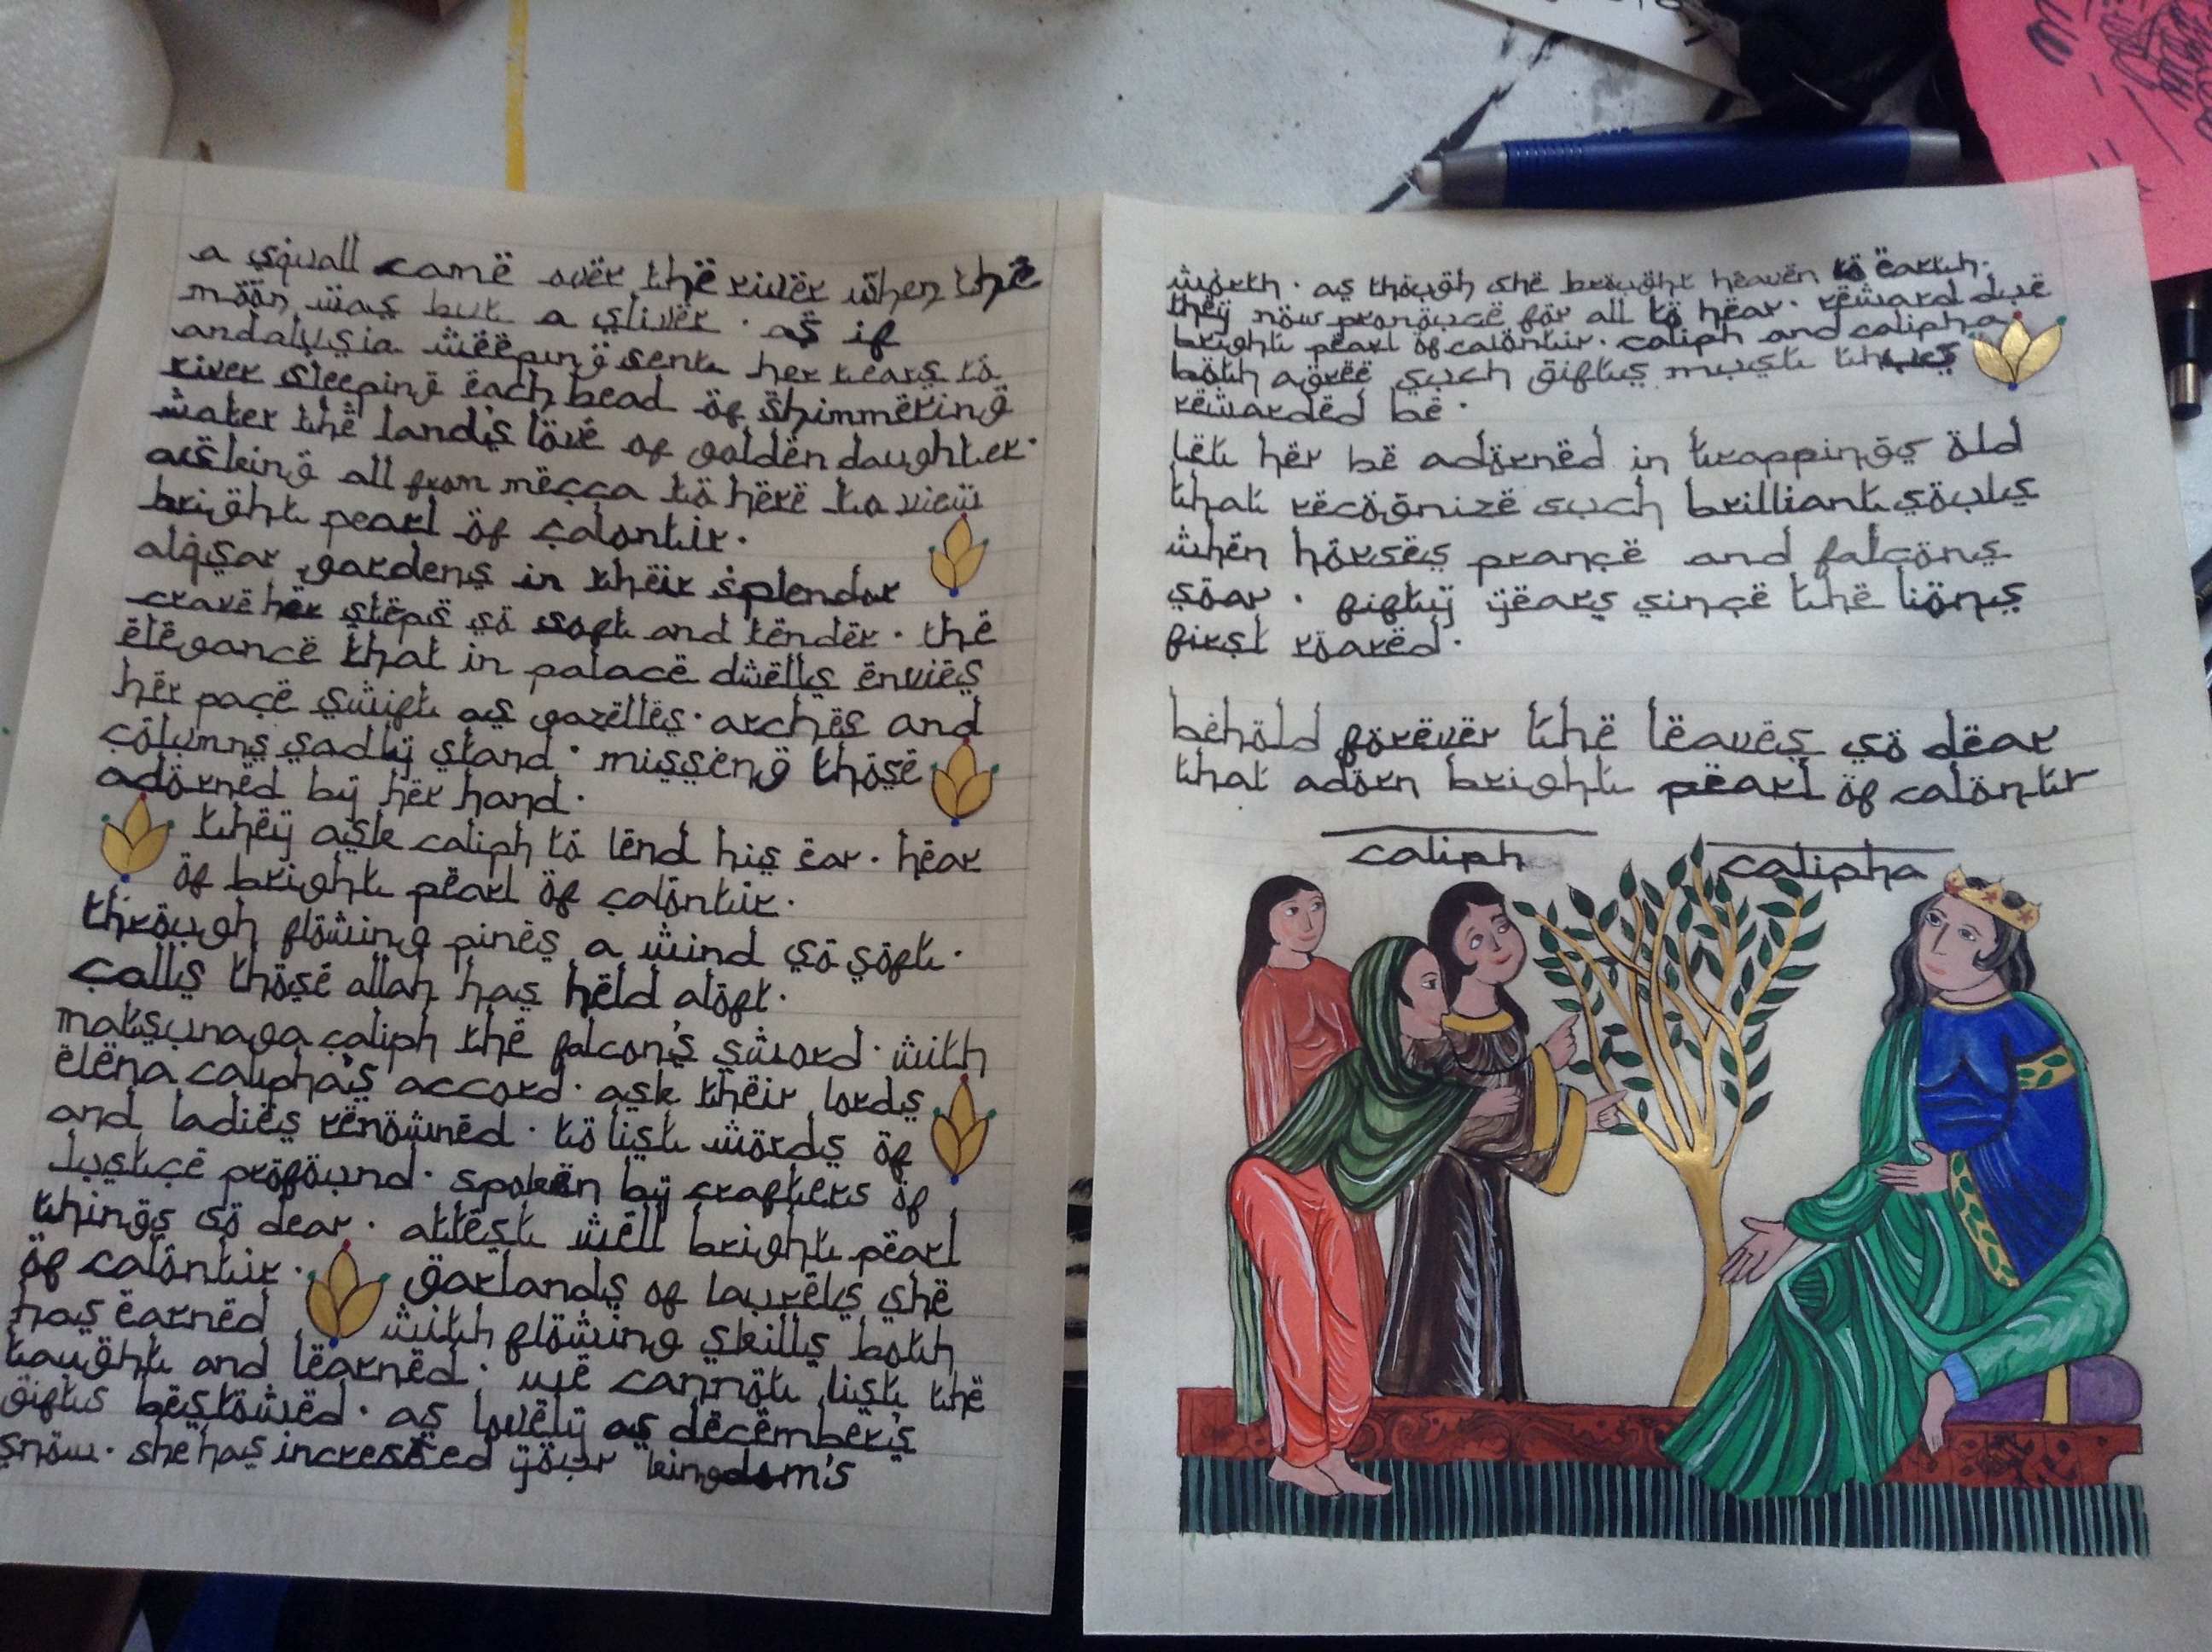 a squall came over the river when the
moon was but a sliver · as if
andalusia weeping sent her tears to
river sleeping each bead of shimmering
water the land's love of golden daughter ·
asking all from mecca to here to view
bright pearl of calontir ·
alqsar gardens in their splendor
crave her steps so soft and tender · the
elegance that in palace dwells envies
her pace swift as gazelles · arches and
columns sadly stand · misseng those
adorned by her hand ·
they ask caliph to lend his ear · hear
of bright pearl of calontir ·
through flowing pines a wind so soft ·
calls those allah has held aloft ·
matsunaga caliph the falcon's sword · with
elena calipha's accord · ask their lords
and ladies renowned · to list words of
justice profound · spoken by crafters of
things so dear · attest well bright pearl
of calontir · garlands of laurels she
has earned with flowing skills both
taught and learned · we cannot list the
gifts bestowed · as lovely as december's
snow · she has increased your kingdom's
worth · as though she brought heaven to earth ·
they now pronouce for all to hear · reward due
bright pearl of calontir · caliph and calipha
both agree such gifts must
rewarded be ·
let her be adorned in trappings old
that recognize such brilliant souls
when horses prance and falcons
soar · fifty years since the lions
first roared ·
behold forever the leaves so dear
that adorn bright pearl of calontir
caliph
calipha